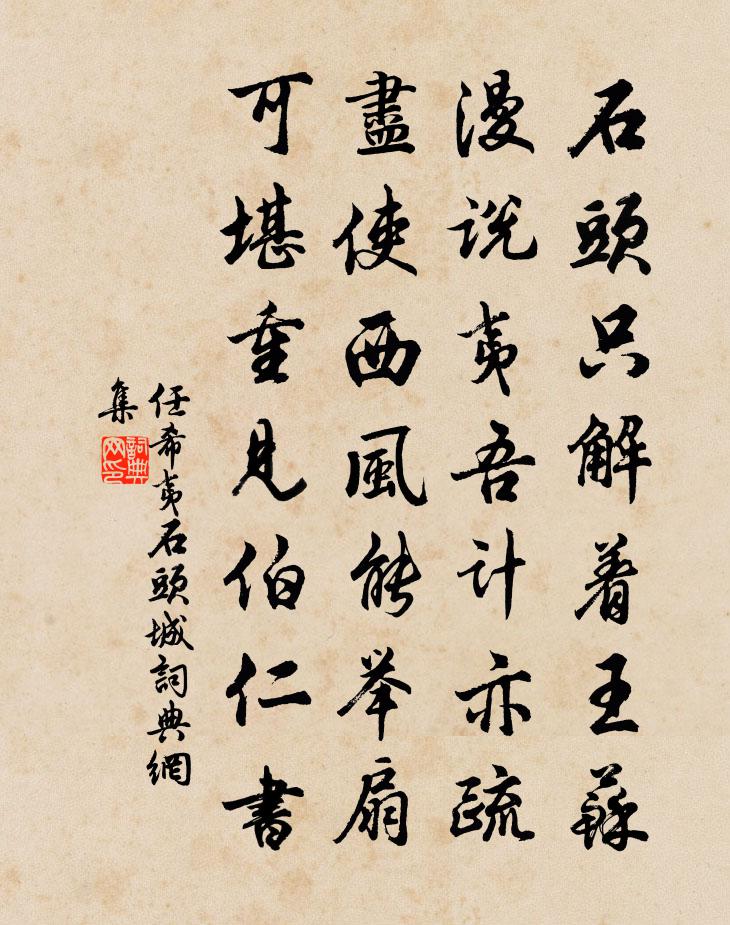 石頭只解着王蘇
漫説夷吾計亦疏
盡使西風能举扇
可堪重見伯仁書
任希夷石頭城詞典網
集
詞典网印